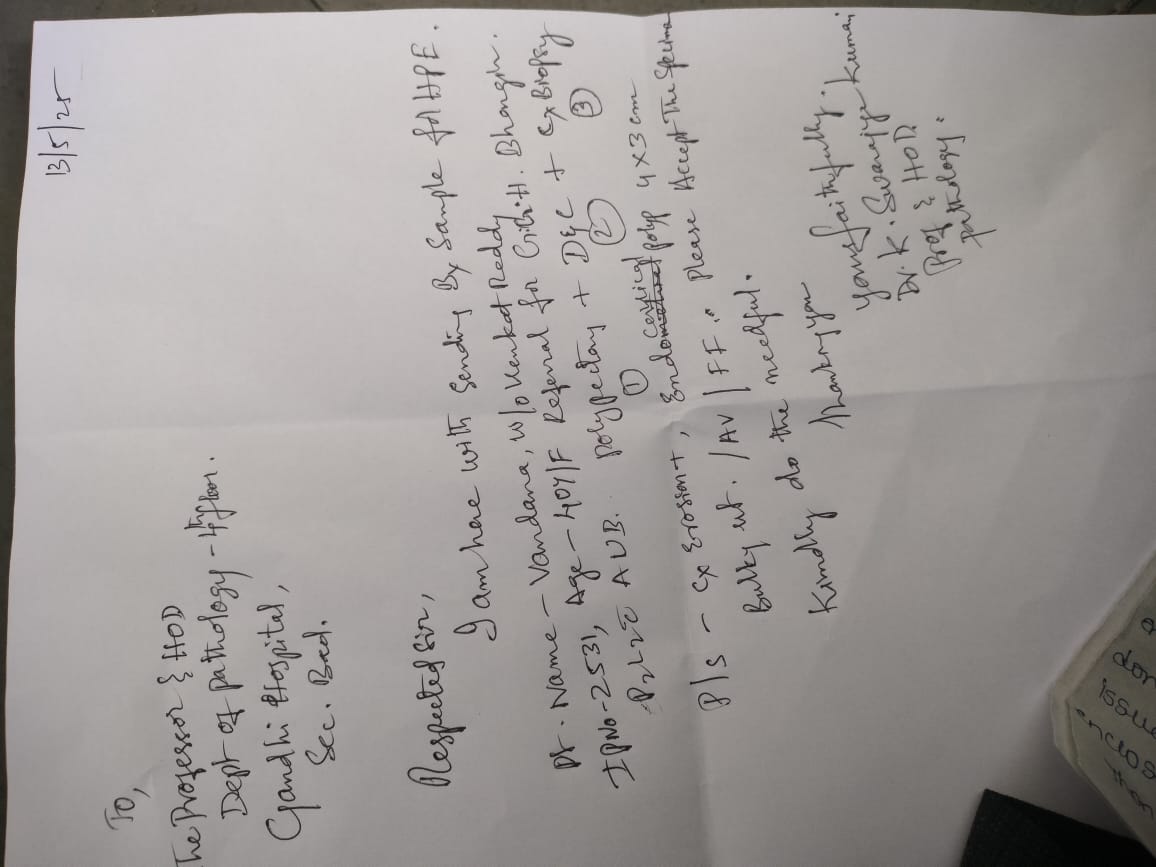 13/5/25
To,
The Professor & HOD
Dept of pathology - 4th floor.
Gandhi Hospital,
Sec. Bad.
Respected Sir,
I am here with Sending Bx Sample for HPE.
Pt. Name - Vandana, w/o Venkat Reddy
IPNo - 2531, Age - 40y/F Referral for H. Bhongir.
P2L2 c̄ AUB. polypectomy + D&C + Cx Biopsy
① ② ③
P/S - Cx Erosion+, Endocervical polyp 4x3 cm
Bulky ut. /AV / FF. Please Accept The Specimen
Kindly do the needful.
Thanking you
Yours faithfully.
Dr. K. Swarajya Kumari
Prof & HOD
Pathology.
don
issue
enclos